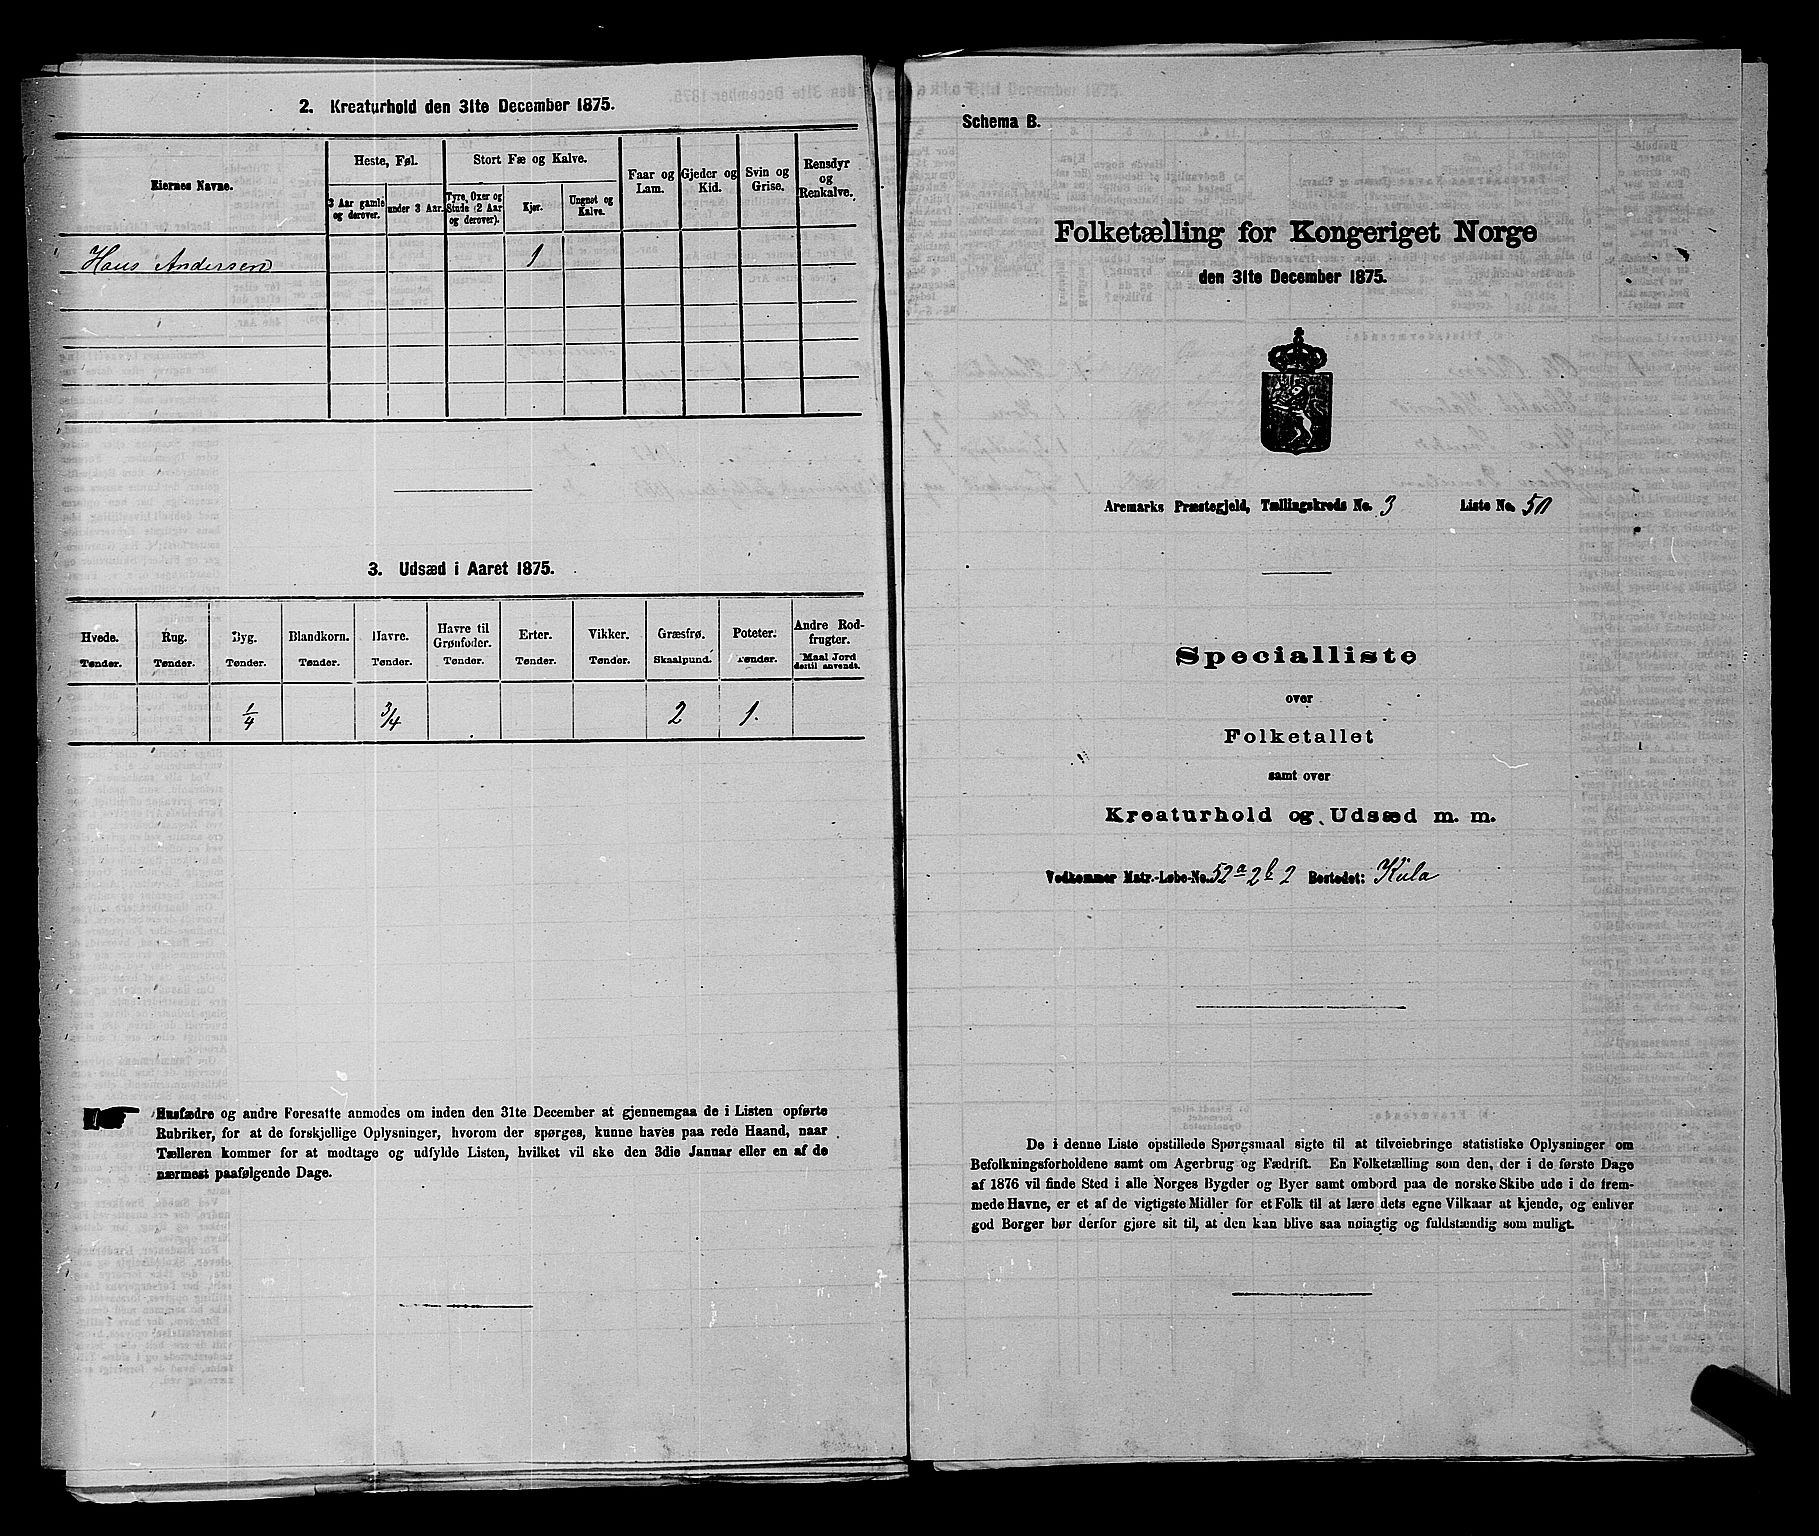 2. Kreaturhold den 31te December 1875.
Eiernes Navne.
Heste, Føl.
3 Aar gamle og derover.
under 3 Aar.
Stort Fæ og Kalve.
Tyre, Oxer og Stude (2 Aar og derover).
Kjør.
Ungnøt og Kalve.
Faar og Lam.
Gjeder og Kid.
Svin og Grise.
Rensdyr og Renkalve.
Hans Andersen 1
3. Udsæd i Aaret 1875.
Hvede. Rug. Byg. Blandkorn. Havre. Havre til Grønfoder. Erter. Vikker. Græsfrø. Poteter. Andre Rodfrugter.
Tønder. Tønder. Tønder. Tønder. Tønder. Tønder. Tønder. Tønder. Skaalpund. Tønder. Maal Jord dertil anvendt.
1/4 3/4 2 1.
Husfædre og andre Foresatte anmodes om inden den 31te December at gjennemgaa de i Listen opførte
Rubriker, for at de forskjellige Oplysninger, hvorom der spørges, kunne haves paa rede Haand, naar
Tælleren kommer for at modtage og udfylde Listen, hvilket vil ske den 3die Januar eller en af de
nærmest paafølgende Dage.
Schema B.
Folketælling for Kongeriget Norge
den 31te December 1875.
Aremarks Præstegjeld, Tællingskreds No. 3 Liste No. 50
Specialliste
over
Folketallet
samt over
Kreaturhold og Udsæd m. m.
Vedkommer Matr.-Løbe-No. 52a2b2 Bostedet: Kula
De i denne Liste opstillede Spørgsmaal sigte til at tilveiebringe statistiske Oplysninger om
Befolkningsforholdene samt om Agerbrug og Fædrift. En Folketælling som den, der i de første Dage
af 1876 vil finde Sted i alle Norges Bygder og Byer samt ombord paa de norske Skibe ude i de frem-
mede Havne, er et af de vigtigste Midler for et Folk til at lære dets egne Vilkaar at kjende, og enhver
god Borger bør derfor gjøre sit til, at den kan blive saa nøiagtig og fuldstændig som muligt.